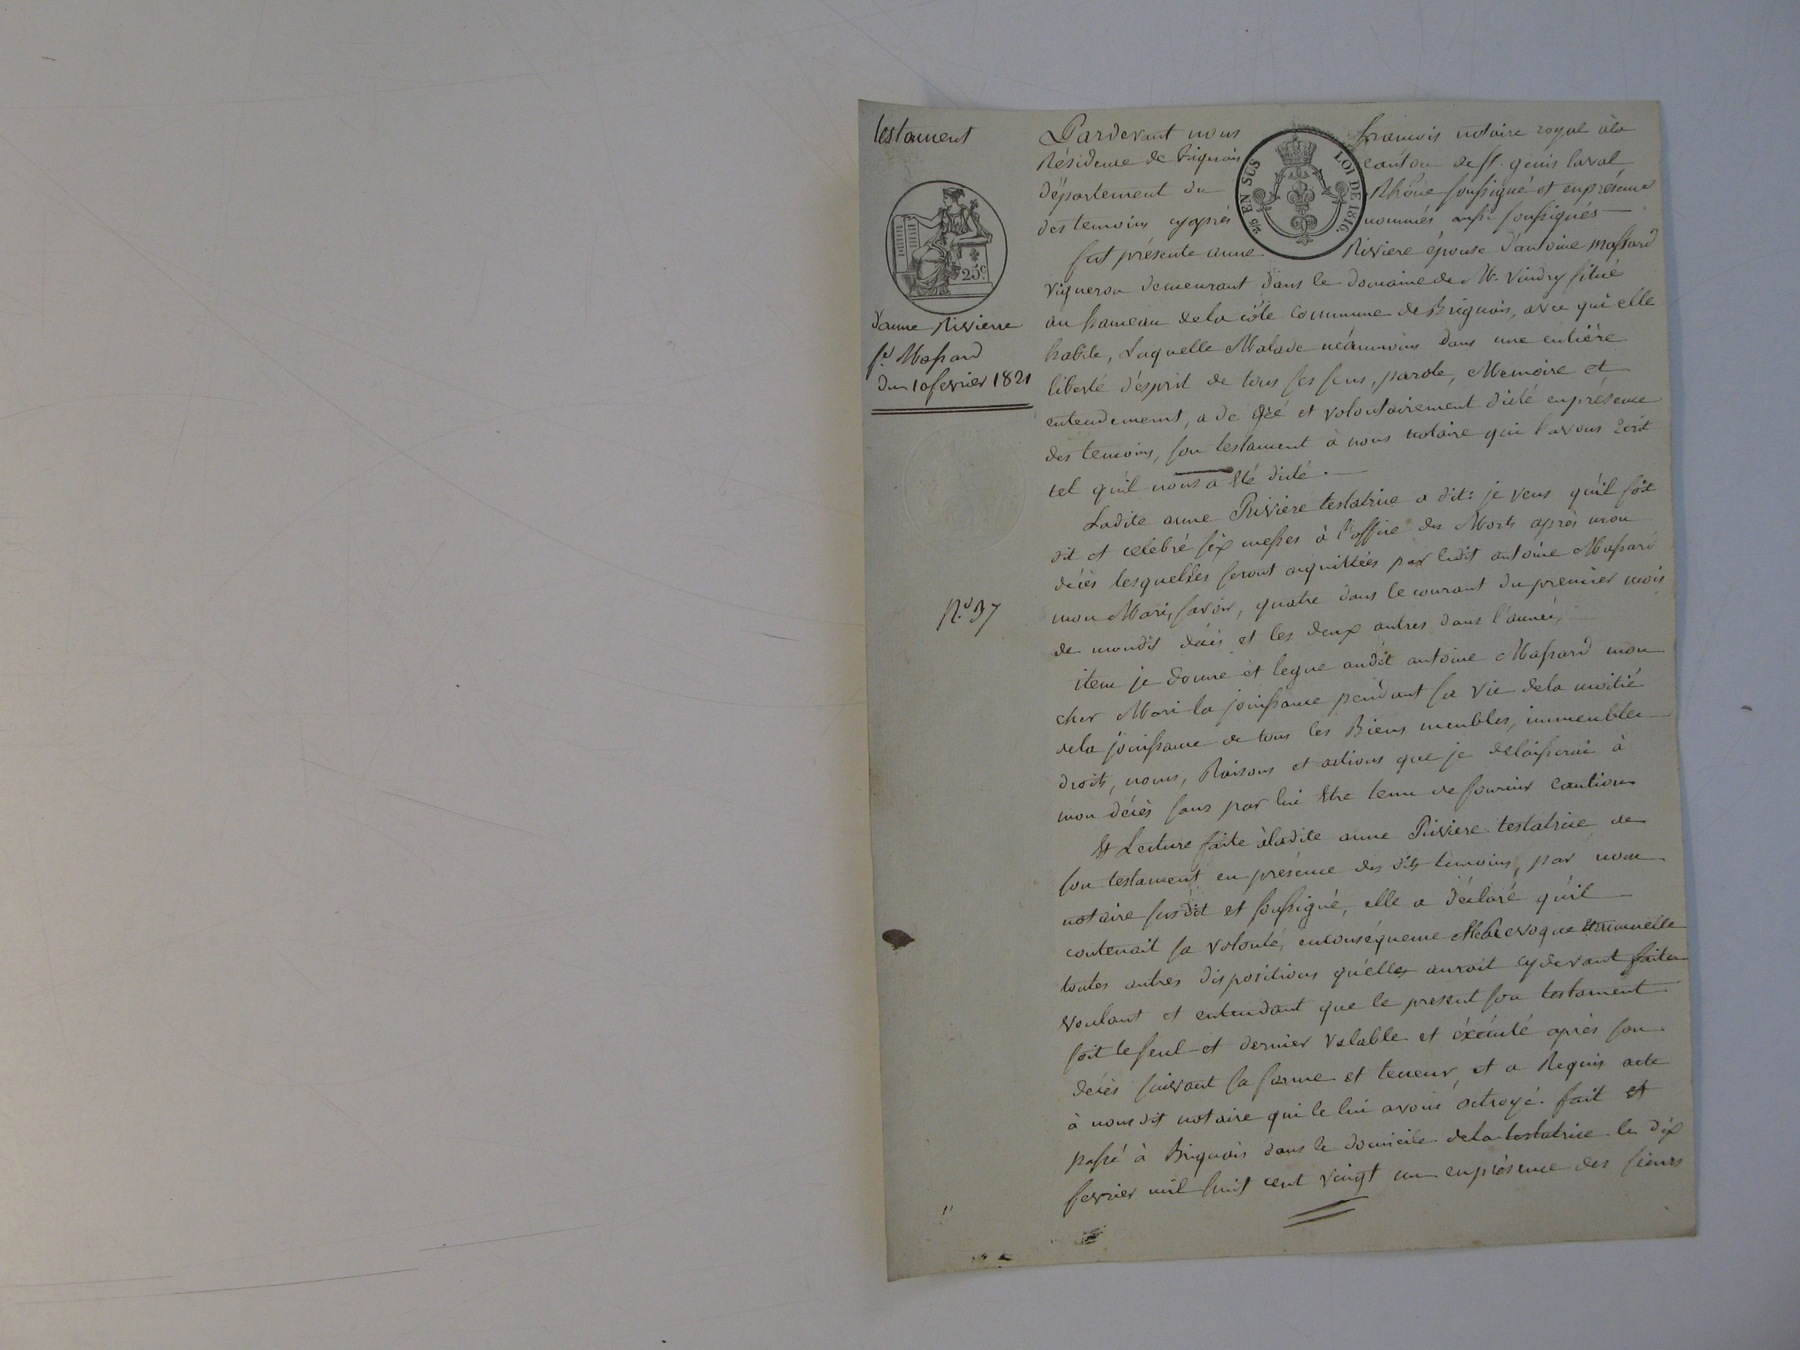 testament
25c
d'anne Rivierre
fe Massard
du 10 fevrier 1821
No. 37
EN SUS
LOI DE 1816.
Pardevant nous françois notaire royal à la
Résidence de Brignais canton de St. genis laval
département du Rhône soussigné et en présence
des temoins cy après nommés aussi soussignés
fut présente anne Riviere épouse d'antoine Massard
vigneron demeurant dans le domaine de Mr. Vindry situé
au hameau de la côte commune de Brignais, avec qui elle
habite, Laquelle Malade néanmoins dans une entière
liberté d'esprit de tous ses sens, parole, Memoire et
entendement, a de gré et volontairement dicté en présence
des temoins, son testament à nous notaire qui l'avons Ecrit
tel qu'il nous a Eté dicté.
Ladite anne Riviere testatrice a dit: je veux qu'il soit
dit et celebré six messes à l'office des Morts après mon
décès lesquelles seront acquittées par ledit antoine Massard
mon Mari, savoir, quatre dans le courant du premier mois
de mondit décès et les deux autres dans l'année,
item je donne et legue audit antoine Massard mon
cher Mari la jouissance pendant sa vie de la moitié
de la jouissance de tous les Biens meubles, immeubles
droits, noms, Raisons et actions que je delaisserai à
mon décès sans par lui Etre tenu de fournir caution
Et Lecture faite à ladite anne Riviere testatrice de
son testament en présence des dits temoins, par nous
notaire susdit et soussigné, elle a déclaré qu'il
contenait sa volonté, en conséquence Elle Revoque Et annulle
toutes autres dispositions qu'elles auroit cy devant faites
voulant et entendant que le present son testament
soit le seul et dernier valable et éxécuté après son
décès suivant sa forme et teneur, et a Requis acte
à nous dit notaire qui le lui avons octroyé. fait et
passé à Brignais dans le domicile de la testatrice le dix
fevrier mil huit cent vingt un en présence des sieurs